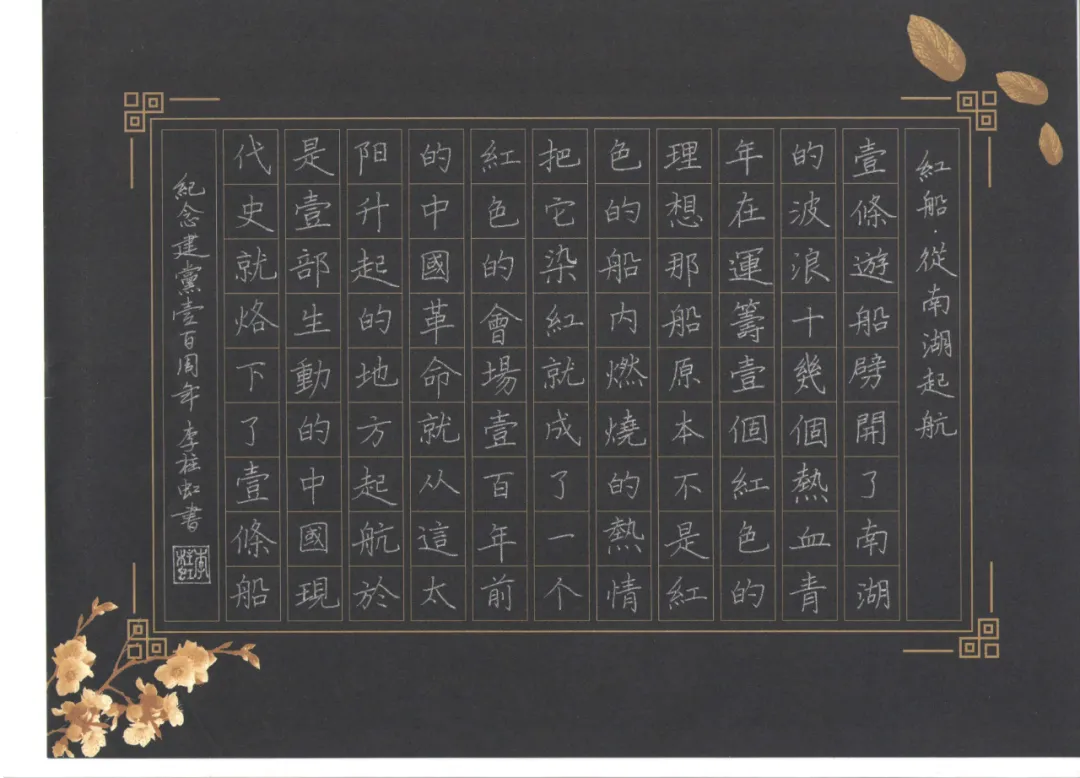 紅船·從南湖起航
壹條遊船劈開了南湖
的波浪十幾個熱血青
年在運籌壹個紅色的
理想那船原本不是紅
色的船内燃燒的熱情
把它染紅就成了一个
紅色的會場壹百年前
的中國革命就从這太
阳升起的地方起航於
是壹部生動的中國現
代史就烙下了壹條船
紀念建黨壹百周年 李桂虹書